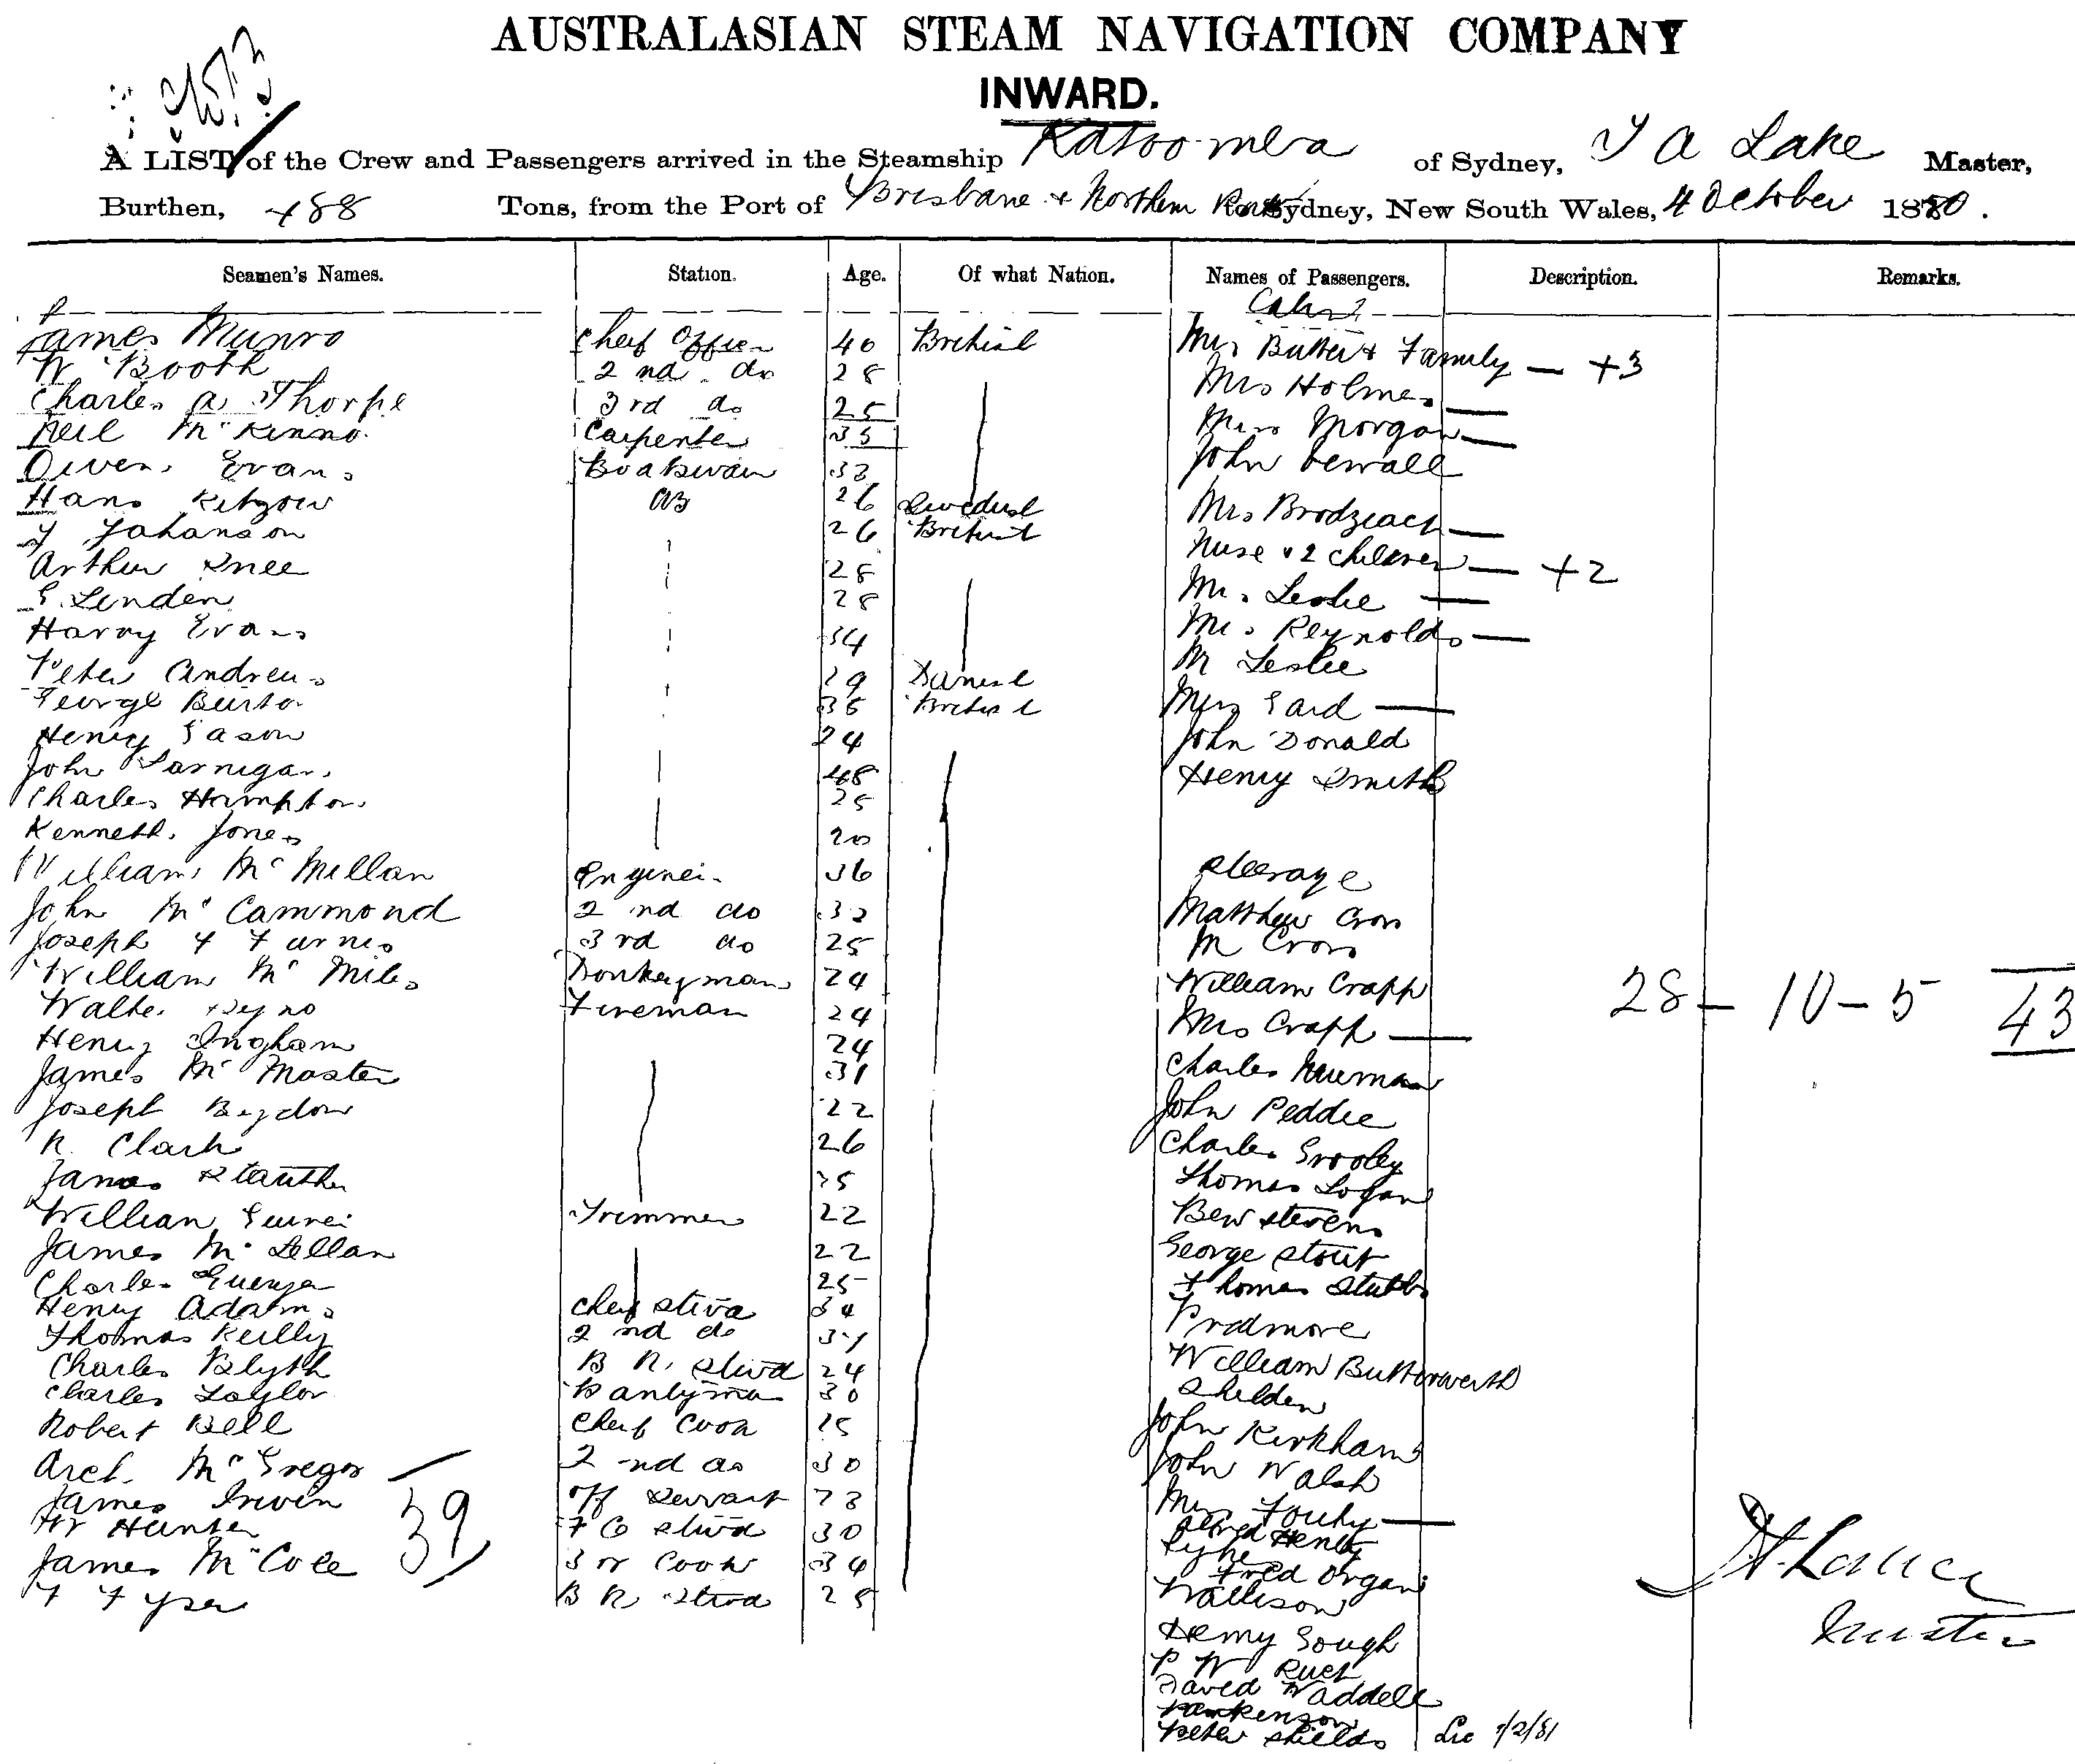 AUSTRALASIAN STEAM NAVIGATION COMPANY
INWARD.
A LIST of the Crew and Passengers arrived in the Steamship Katoomba of Sydney, T A Lake Master,
Burthen, 488 Tons, from the Port of Brisbane & Northern Ports Sydney, New South Wales, 4 October 1880.
Seamen's Names. Station. Age. Of what Nation. Names of Passengers. Description. Remarks.
James Munro Cheif Officer 40 British Butler & Family — +3
W Booth 2nd do 28 Mrs Holmes —
Charles A Thorpe 3rd do 25 Morgan —
Neil McKinno 35 Carpenter John Sewall
Owen Evans Boatswain 32
Hans Ritzow AB 26 Swedish Mrs Brodzeack —
J Johanson 26 British Nurse & 2 children — +2
Arthur Snee 28
G. Linden 28 Leslie —
Harry Evans 34 Reynolds —
Peter Andrews 29 Danish M Leslie
George Burton 36 British Gard —
Henry Gason 24 John Donald
John 48 Henry Smith
Charles Hampton 25
Kenneth Jones 20
William McMillan Engineer 36 Steerage
John McCammond 2nd do 32 Matthew Cross
Joseph 3rd do 25 M Cross
William McMiles Donkeyman 24 William Crapp 28 — 10 — 5 43
Walter Fireman 24 Mrs Crapp —
Henry Ingham 24
James McMaster 31 Charles Newman
Joseph 22 John Peddie
R. Clark 26 Charles Grooby
James 25 Thomas Logan
William Trimmer 22 Ben Stevens
James McLellan 22 George Stout
Charles 25 Thomas Stubbs
Henry Adams Cheif Stwd 34 Prodmore
Thomas Reilly 2nd do 37 William Butterworth
Charles Blyth B R. Stwd 24 Shelden
Charles Taylor Pantryman 30 John Kirkham
Robert Bell Cheif Cook 25 John Walsh
Arch. McGregor 2nd do 30 —
James Irwin Off Servant Alfred Henty
W Hunter F C Stwd 30 Fred Organ
James McCole 3rd Cook 34 Wallison
F Fyser B R Stwd 28 Henry Gough
39
P W
David Waddell
Peter Shields
A Lake
Master